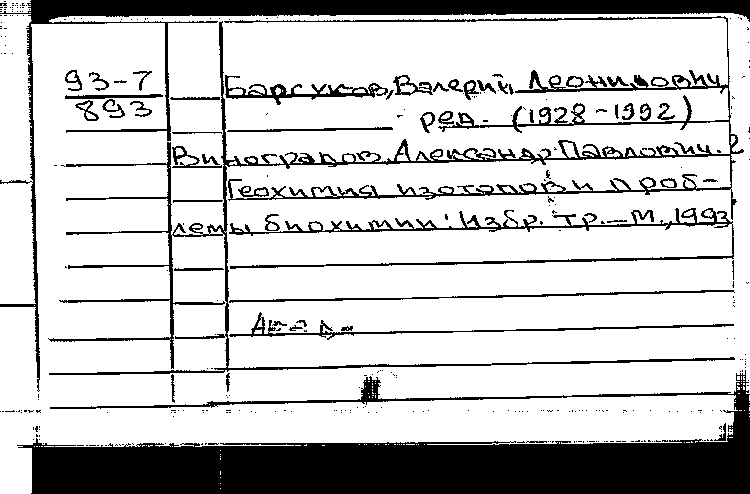 93-7
893
Барсуков, Валерий Леонидович,
ред. (1928-1992)
Виноградов, Александр Павлович.
Геохимия изотопов и проб-
лемы биохимии: Избр. тр.—М., 1993